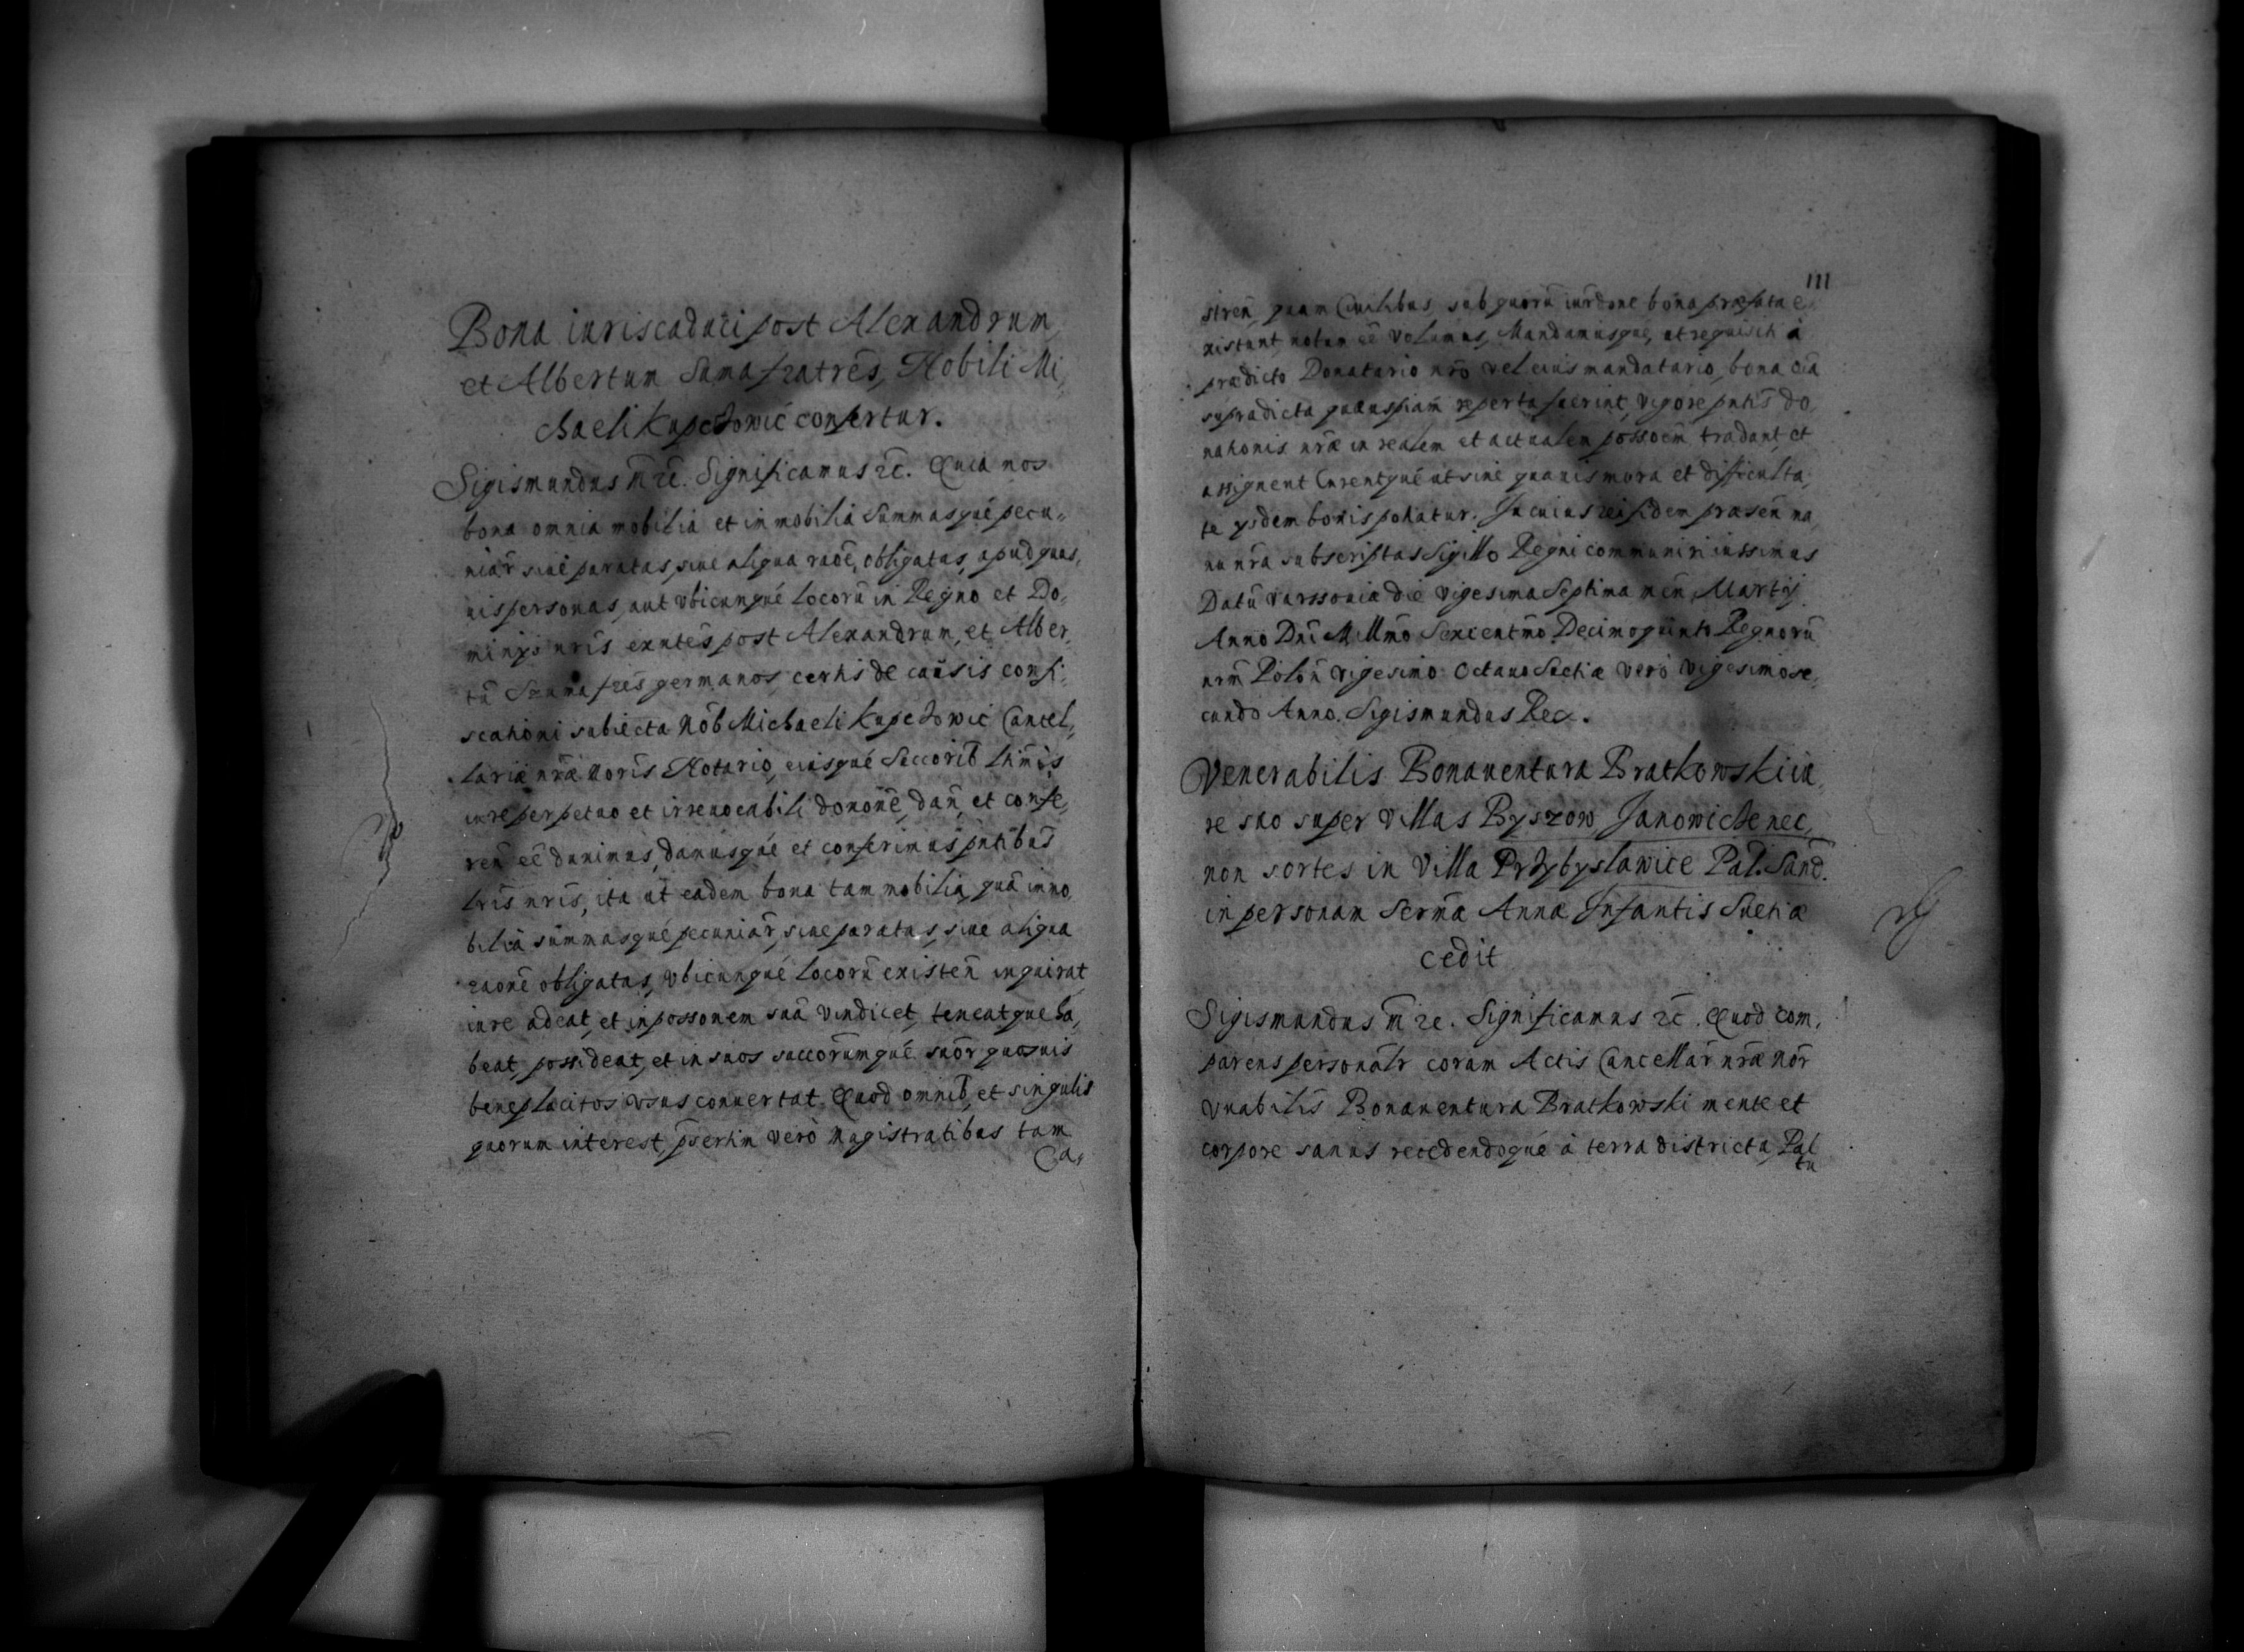 Bona iuris caduci post Alexandrum
et Albertum Suma fratres, Nobili Mi,
chaeli Kupchowic confertur.
Sigismundus m̃ rc̃. Significamus rc̃. Quia nos
bona omnia mobilia et inmobilia summasqué pecu„
niar̃ siué paratas, siue aliqua raõe, obligatas, apud quas,
uis personas, aut vbicunqué locorũ in Regno et Do,
minÿs nris̃ exñtes post Alexandrum, et Alber,
tũ frẽs germanos certis de causis confi,
scationi subiecta Nob̃ Michaeli Kupchowic Cancel„
lariæ nr̃æ Noris̃ Notario, eiusqué Seccorib̃ ltim̃is
iure perpetuo et irreuocabili donoñe, dañ, et confe,
reñ eẽ duximus, damusqué et conferimus pñtibus
lris̃ nris̃, ita ut eadem bona tam mobilia, quã inmo,
bilia summasqué pecuniar̃, siue paratas, siue aliqua
raoñe obligatas, vbicunqué locorũ existeñ inquirat
iure adeat, et in possonem suã vindicet, teneatque ha,
beat, possideat, et in suos succorumqué suor̃ quosuis
beneplacitos vsus conuertat. Quod omnib̃, et singulis
quorum interest, p̃sertim verò Magistratibus tam
Ca„
111
streñ, quam Ciuilibus, sub quorũ iurdone bona præfata e,
xistunt notum eẽ volumus, Mandamusque, ut requisiti à
prædicto Donatario nrõ vel eius mandatario, bona oĩa
supradicta quæuspiam reperta fuerint, vigore pñtis do,
nationis nr̃æ in realem et actualem possoem̃ tradant, et
assignent Curentqué ut sine quauis mora et difficulta,
te ÿsdem bonis potiatur. In cuius rei fidem præseñ ma,
nu nr̃a subscriptas Sigillo Regni communiri iussimus
Datũ Varssouiæ die vigesima Septima meñ Martÿ
Anno Dñi Millmõ Sexcentmõ Decimoquinto Regnorũ
nrm̃ Poloñ vigesimo Octauo Suetiæ verò vigesimo se,
cundo Anno. Sigismundus Rex.
Venerabilis Bonauentura Bratkowski iu,
re suo super Villas Byszow Janowiche nec,
non sortes in Villa Przybyslawice Pal. Sand.
in personam Serm̃æ Annæ Infantis Suetiæ
cedit
Sigismundus m̃ rc. Significamus rc̃. Quod com,
parens personal̃r coram Actis Cancellar̃ nr̃æ Nor̃
Vnabilis̃ Bonauentura Bratkowski mente et
corpore sanus recedendoqué à terra districtu, Pal
tu